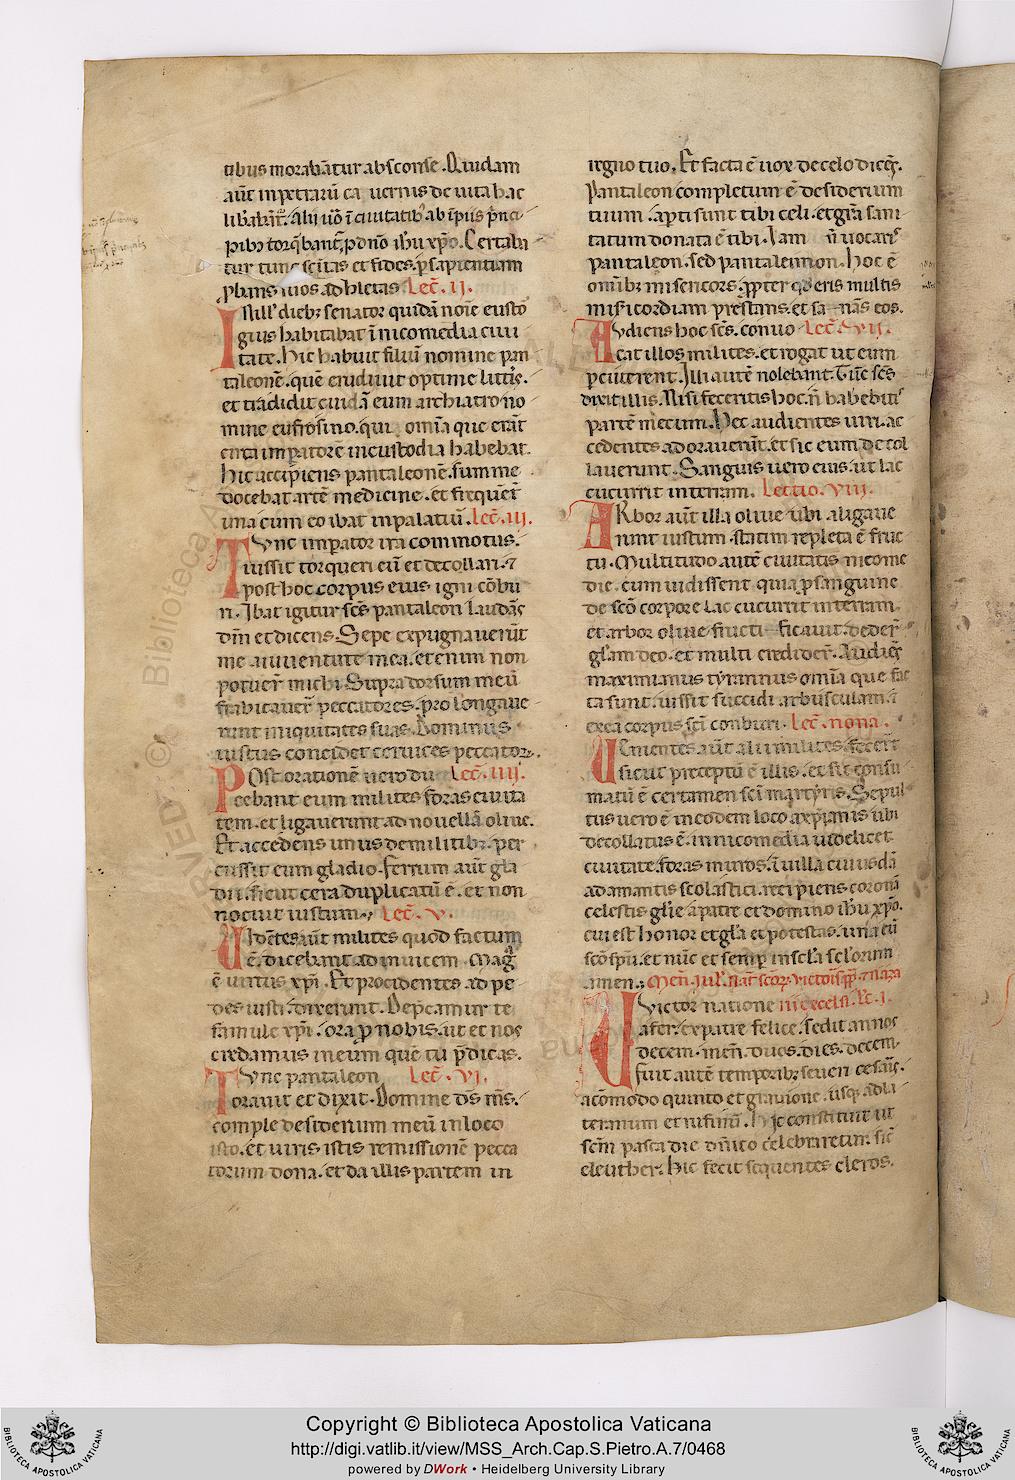 tibus morabãtur absconse. Quidam
aũt in petrarũ ca uernis de uita hac
librabãt̃. Alii uõ ĩ ciuitatibꝰ ab ĩpiis p̃nci
pibꝫ torq̃banẽ, p dño ihũ xp̃o. Certaba
tur tunc sc̃itas et fides. ꝑ sapientiam
ꝓbans uiros adhletas. Lec̃. II.
I N ill' diebꝫ senator quidã noĩe eusto
gius habitabat ĩ nicomedia ciui
tate. Hic habuit filiũ nomine pan
taleonẽ. quẽ erudiuit optime litt̃is.
et tradidit cuidã eum archiatro no
mine eufrosino. qui omĩa que erãt
circa imꝑatorẽ in custodia habebat.
Hic accipiens pantaleonẽ. summe
docebat artẽ medicine. et frequẽt̃
una cum eo ibat in palatiũ. Lec̃. III.
T Vnc imꝑator ira commotus.
iussit torqueri eũ et decollari. ⁊
post hoc corpus eius igni cõbu
ri. Ibat igitur sc̃s pantaleon laudãs
dm̃ et dicens. Sepe expugnauerũt
me a iuuentute mea. etenim non
potuer̃ michi. Supra dorsum meũ
fabricauer̃ peccatores. prolongaue
runt iniquitates suas. Dominus
iustus concidet ceruices peccatorꝫ.
P Ost orationẽ uero du Lec̃. IIII.
cebant eum milites foras ciuita
tem. et ligauerunt ad nouellã oliue.
Et accedens unus de militibꝫ. per
cussit cum gladio. Ferrum aũt gla
dii. sicut cera duplicatũ ẽ. et non
nocuit iustum. Lec̃. V.
U Idẽtes aũt milites quod factum
ẽ. dicebant ad inuicem. Mag̃
ẽ uirtus xp̃i. Et procidentes ad pe
des iusti. dixerunt. Dep̃camur te
famule xp̃i. ora ꝓ nobis. ut et nos
credamus in eum quẽ tu p̃dicas.
T Vnc pantaleon Lec̃. VI.
orauit et dixit. Domine ds̃ ms̃.
comple desiderium meũ in loco
isto. et uiris istis remissionẽ pecca
torum dona. et da illis partem in
regno tuo. Et facta ẽ uox de celo dicẽs.
Pantaleon completum ẽ desiderium
tuum. apti sunt tibi celi. et gr̃a sani
tatum donata ẽ tibi. Iam ñ uocaris
pantaleon. sed pantaleimon. Hoc ẽ
omĩbꝫ misericors. ꝓpter qď eris multis
misicordiam prestans. et sanans eos.
A Vdiens hoc sc̃s. conuo Lec̃. VII.
cat illos milites. et rogat ut eum
ꝑcuterent. Illi autẽ nolebant. Tũc sc̃s
dixit illis. Nisi feceritis hoc. ñ habebitis
partẽ mecum. Hec audientes uiri. ac
cedentes adorauerũt. et sic eum decol
lauerunt. Sanguis uero eius. ut lac
cucurrit in terram. Lectio. VIII.
A Rbor aũt illa oliue ubi aligaue
runt iustum. statim repleta ẽ fruc
tu. Multitudo autẽ ciuitatis nicome
die. cum uidissent quia ꝓ sanguine
de sc̃o corpore lac cucurrit in terram.
et arbor oliue fructificauit. dedert̃
gl'am deo. et multi credider̃. Audiẽs
maximianus tyrannus omĩa que fac
ta sunt. iussit succidi arbusculam. ⁊
corpus sc̃i conburi. Lec̃. nona.
U Enientes aũt alii milites. fecerũt
sicut preceptũ ẽ illis. et sic consu
matũ ẽ certamen sc̃i martyris. Sepul
tus uero ẽ in eodem loco a xp̃ianis ubi
decollatus ẽ. in nicomedia uidelicet
ciuitate. foras muros. ĩ uilla cuiusdã
adamantis scolastici. recipiens coronã
celestis glĩe a patre et domino ihũ xp̃o.
cui est honor et gl'a et potestas. una cũ
sc̃o sp̃u. et nũc et semꝑ in sc̃la sc̃lorum
amen. Men̄. Iul'. Nat̃ sc̃orꝫ. Victoris pp̃. ⁊ Naza
U Victor natione rii ⁊ celsi. Lc̃. I.
afer. ex patre felice. sedit annos
decem. men̄. duos. dies. decem.
fuit autẽ temporibꝫ seueri cesaris.
a cõmodo quinto et gratione. usqꝫ ad la
teranum et rufinũ. Hic constituit ut
sc̃m pasca die dñico celebraretur. sic̃
eleuther. Hic fecit sequentes cleros.
Copyright © Biblioteca Apostolica Vaticana
http://digi.vatlib.it/view/MSS_Arch.Cap.S.Pietro.A.7/0468
powered by DWork • Heidelberg University Library